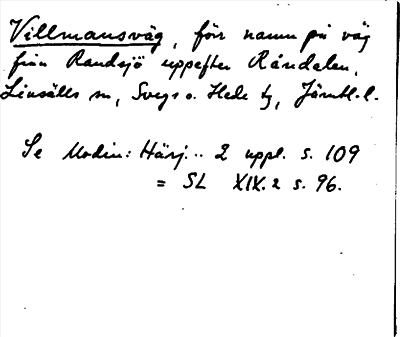 Villmansväg, förr namn på väg
från Randsjö uppefter Rändalen,
Linsälls sn, Svegs o. Hede tg, Jämtl. l.
Se Modin: Härj... 2 uppl. s. 109
= SL XIX.2 s. 96.